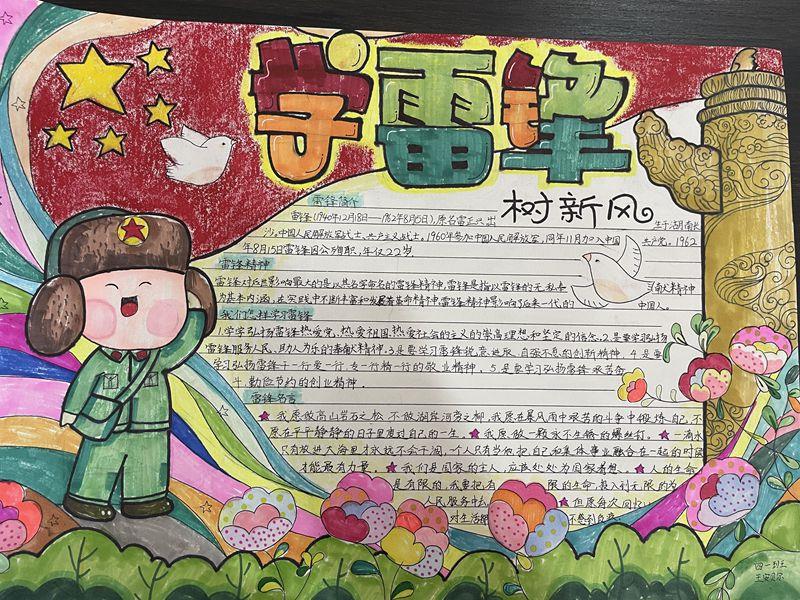 学雷锋
树新风
雷锋简介
雷锋(1940年12月18日——1962年8月15日),原名雷正兴,出生于湖南长
沙,中国人民解放军战士、共产主义战士。1960年参加中国人民解放军,同年11月加入中国共产党。1962
年8月15日雷锋因公殉职,年仅22岁
雷锋精神
雷锋对后世影响最大的是以其名字命名的雷锋精神,雷锋是指以雷锋的无私奉献精神
为基本内涵,在实践中不断丰富和发展着革命精神,雷锋精神影响了后来一代的中国人。
我们怎样学习雷锋
1.学学弘扬雷锋热爱党、热爱祖国、热爱社会的主义的崇高理想和坚定的信念、2.是要学习弘扬
雷锋服务人民、助人为乐的奉献精神、3.是要学习雷锋锐意进取、自强不息的创新精神、4.是要
学习弘扬雷锋干一行爱一行、专一行精一行的敬业精神、5.是要学习弘扬雷锋艰苦奋
斗、勤俭节约的创业精神。
雷锋名言
★我愿做高山岩石之松,不做湖岸河旁之柳,我愿在暴风雨中艰苦的斗争中锻炼自己,不
愿在平平静静的日子里度过自己的一生。★我愿做一颗永不生锈的螺丝钉。★一滴水
只有放进大海里才永远不会干涸,一个人只有当他把自己和集体事业融合在一起的时候
才能最有力量。★我们是国家的主人,应该处处为国家着想。★人的生命
是有限的,我要把有限的生命,投入到无限的为
人民服务中去 ★但愿每次回忆
对生活都 不感到负疚
四一班